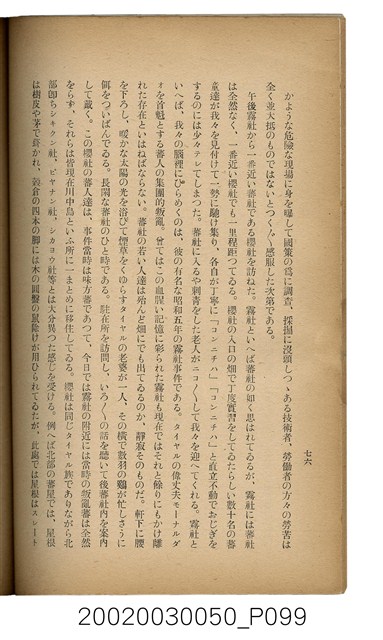 七六
かような危險な現場に身を曝して國策の爲に調査、採掘に沒頭しつゝある技術者、勞働者の方々の勞苦は
全く並大抵のものではないとつく〴〵感服した次第である。
午後霧社から一番近い蕃社である櫻社を訪ねた。霧社といへば蕃社の如く思はれてゐるが、霧社には蕃社
は全然なく、一番近い櫻社でも一里程距つてゐる。櫻社の入口の畑で丁度實習をしてゐたらしい數十名の蕃
童達が我々を見付けて一勢に馳け集り、各自が丁寧に「コンニチハ」「コンニチハ」と直立不動でおじぎを
するのには少々テレてしまつた。蕃社に入るや刺青をした老人がニコ〳〵して我々を迎へてくれる。霧社と
いへば、我々の腦裡にひらめくのは、彼の有名な昭和五年の霧社事件である。タイヤルの偉丈夫モーナルダ
オを首魁とする蕃人の集團的叛亂。曾てはこの血腥い記憶に彩られた霧社も現在ではそれと餘りにもかけ離
れた存在といはねばならない。蕃社の若い人達は殆んど畑にでも出てゐるのか、靜寂そのものだ。軒下に腰
を下ろし、暖かな太陽の光を浴びて煙草をくゆらすタイヤルの老婆が一人、その橫で數羽の鷄が忙しさうに
餌をついばんでゐる。長閑な蕃社のひと時である。駐在所を訪問し、いろ〳〵の話を聽いて後蕃社內を案內
して戴く。この櫻社の蕃人達は、事件當時は味方蕃であつて、今日では霧社の附近には當時の叛亂蕃は全然
をらず、それらは皆現在川中島といふ所に一まとめに移住してゐる。櫻社は同じタイヤル族でありながら北
部卽ちシキクン社、ピヤナン社、シカヨウ社等とは大分異つた感じを受ける。例へば北部の蕃屋では、屋根
は樹皮や茅で葺かれ、穀倉の四本の脚には木の圓盤の鼠除けが用ひられてゐたが、此處では屋根はスレート
20020030050_P099